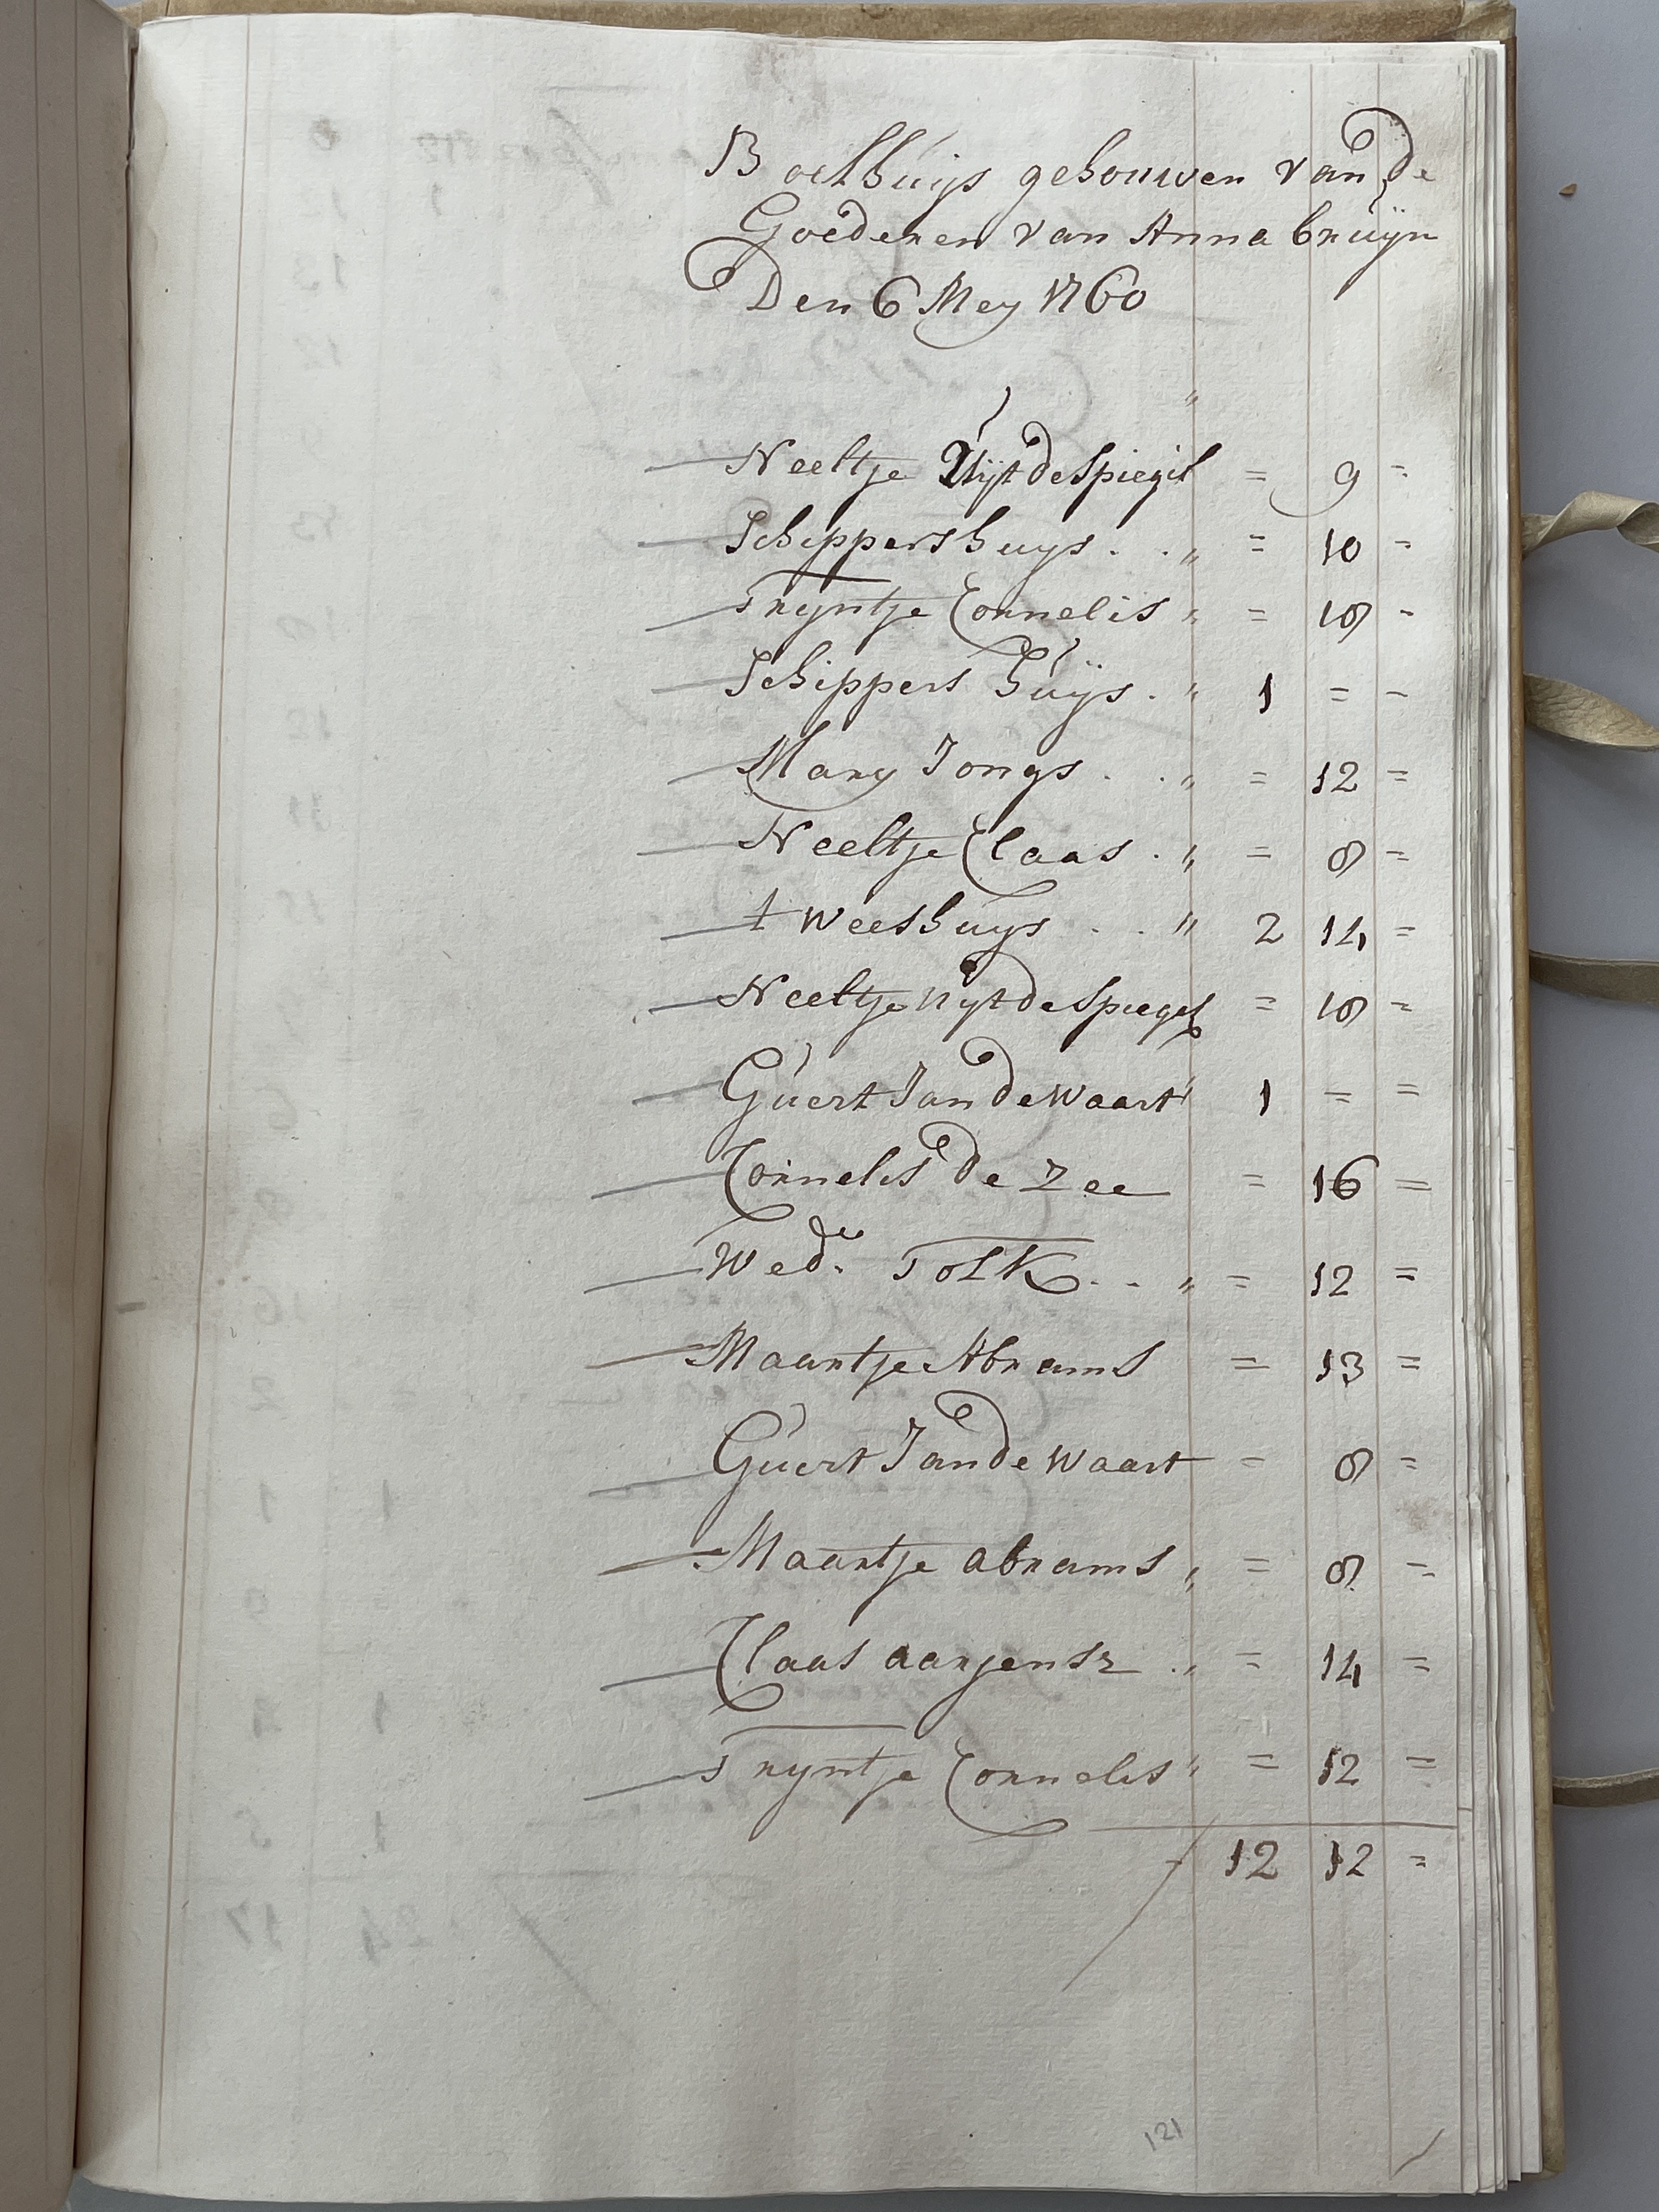 Boelhuijs gehouwen van de
Goederen van Anna Cruijn
Den 6 Mey 1760
"
Neeltje Uijt de Spiegel = 9 -
Schippershuys . . " = 10 -
Tryntje Cornelis " = 18 -
Schippers huijs . " 1 = -
Mary Jongs . . " = 12 =
Neeltje Claas . " = 8 =
t weeshuys . . " 2 14 =
Neeltje uyt de Spiegel = 18 =
Guert Jan de waart " 1 = =
Cornelis de Zee = 16 =
Wed.e Tolk . . " = 12 =
Maartje Abrams = 13 =
Guert Jan de waart = 8 =
Maartje abrams " = 8 =
Claas aarjensz . " = 14 =
Tryntje Cornelis " = 12 =
12 12 =
121